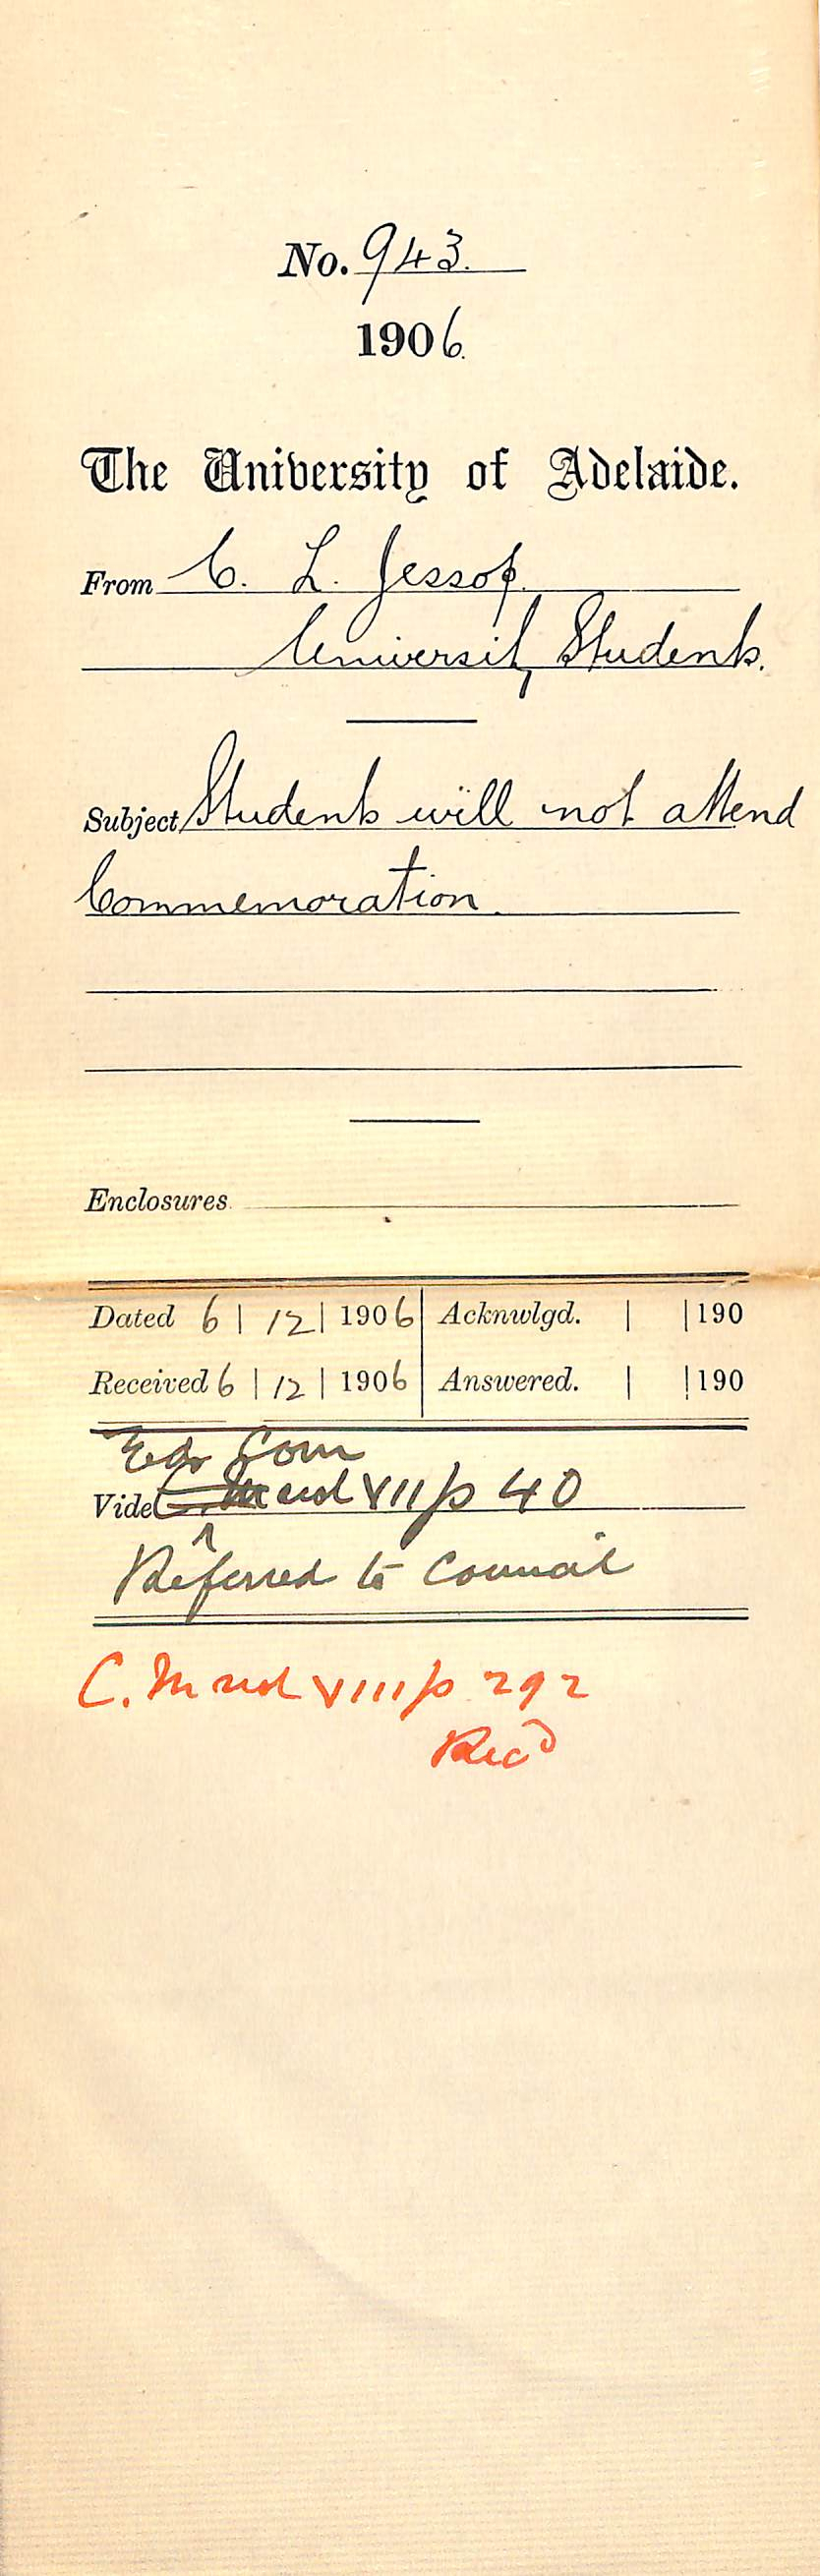 No. 943.
1906.
The University of Adelaide.
From C. L. Jessop.
University Students.
Subject Students will not attend
Commemoration.
Enclosures
Dated 6 | 12 | 1906 Acknwlgd. | | 190
Received 6 | 12 | 1906 Answered. | | 190
Edn Com
Vide vol VII p 40
Referred to Council
C. M vol VIII p 292
Recd